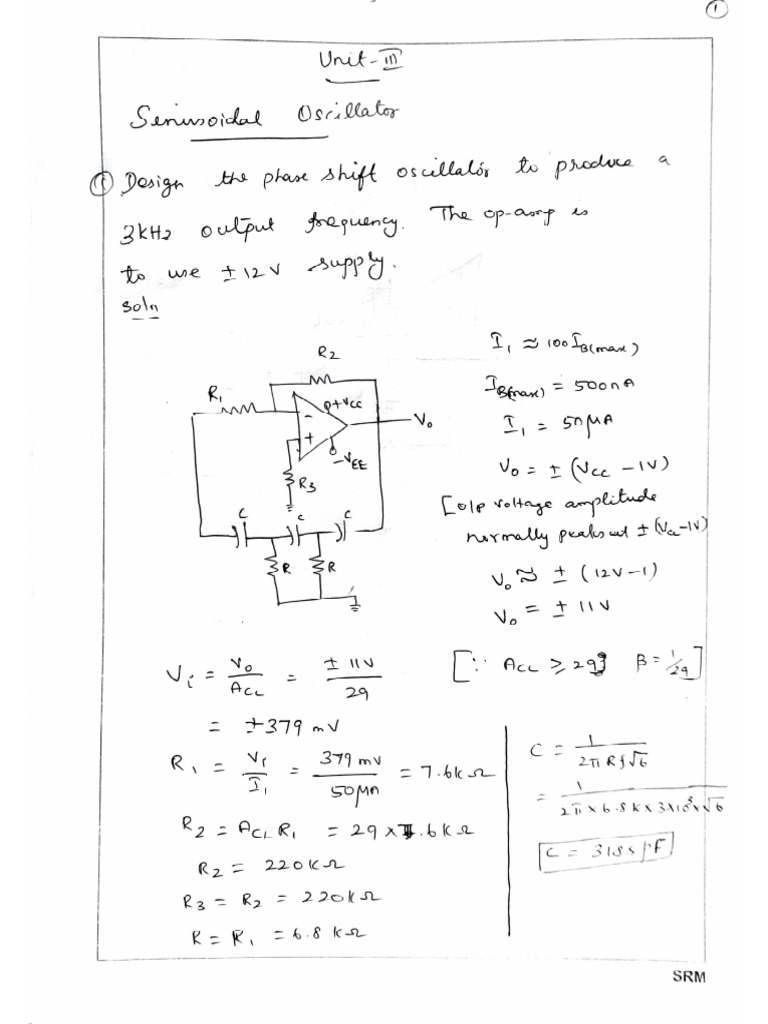 1
Unit-III
Senusoidal Oscillator
(1) Design the phase shift oscillator to produce a
3kHz output frequency. The op-amp is
to use ± 12V supply.
soln
R2
R1
+VCC
-
+
Vo
-VEE
R3
C C C
R R
I1 ≈ 100 IB(max)
IB(max) = 500nA
I1 = 50μA
Vo = ± (Vcc - 1V)
[o/p voltage amplitude
normally peaks out ± (Vcc-1V)
Vo ≈ ± (12V-1)
Vo = ± 11V
Vi = Vo/ACL = ± 11V/29 [∵ ACL ≥ 29] β = 1/29]
= ±379 mV
R1 = Vi/I1 = 379 mV/50μA = 7.6kΩ
R2 = ACL R1 = 29 × 7.6kΩ
R2 = 220kΩ
R3 = R2 = 220kΩ
R = R1 = 6.8kΩ
C = 1/2πRf√6
= 1/2π×6.8k×3×10³×√6
C = 3185pF
SRM